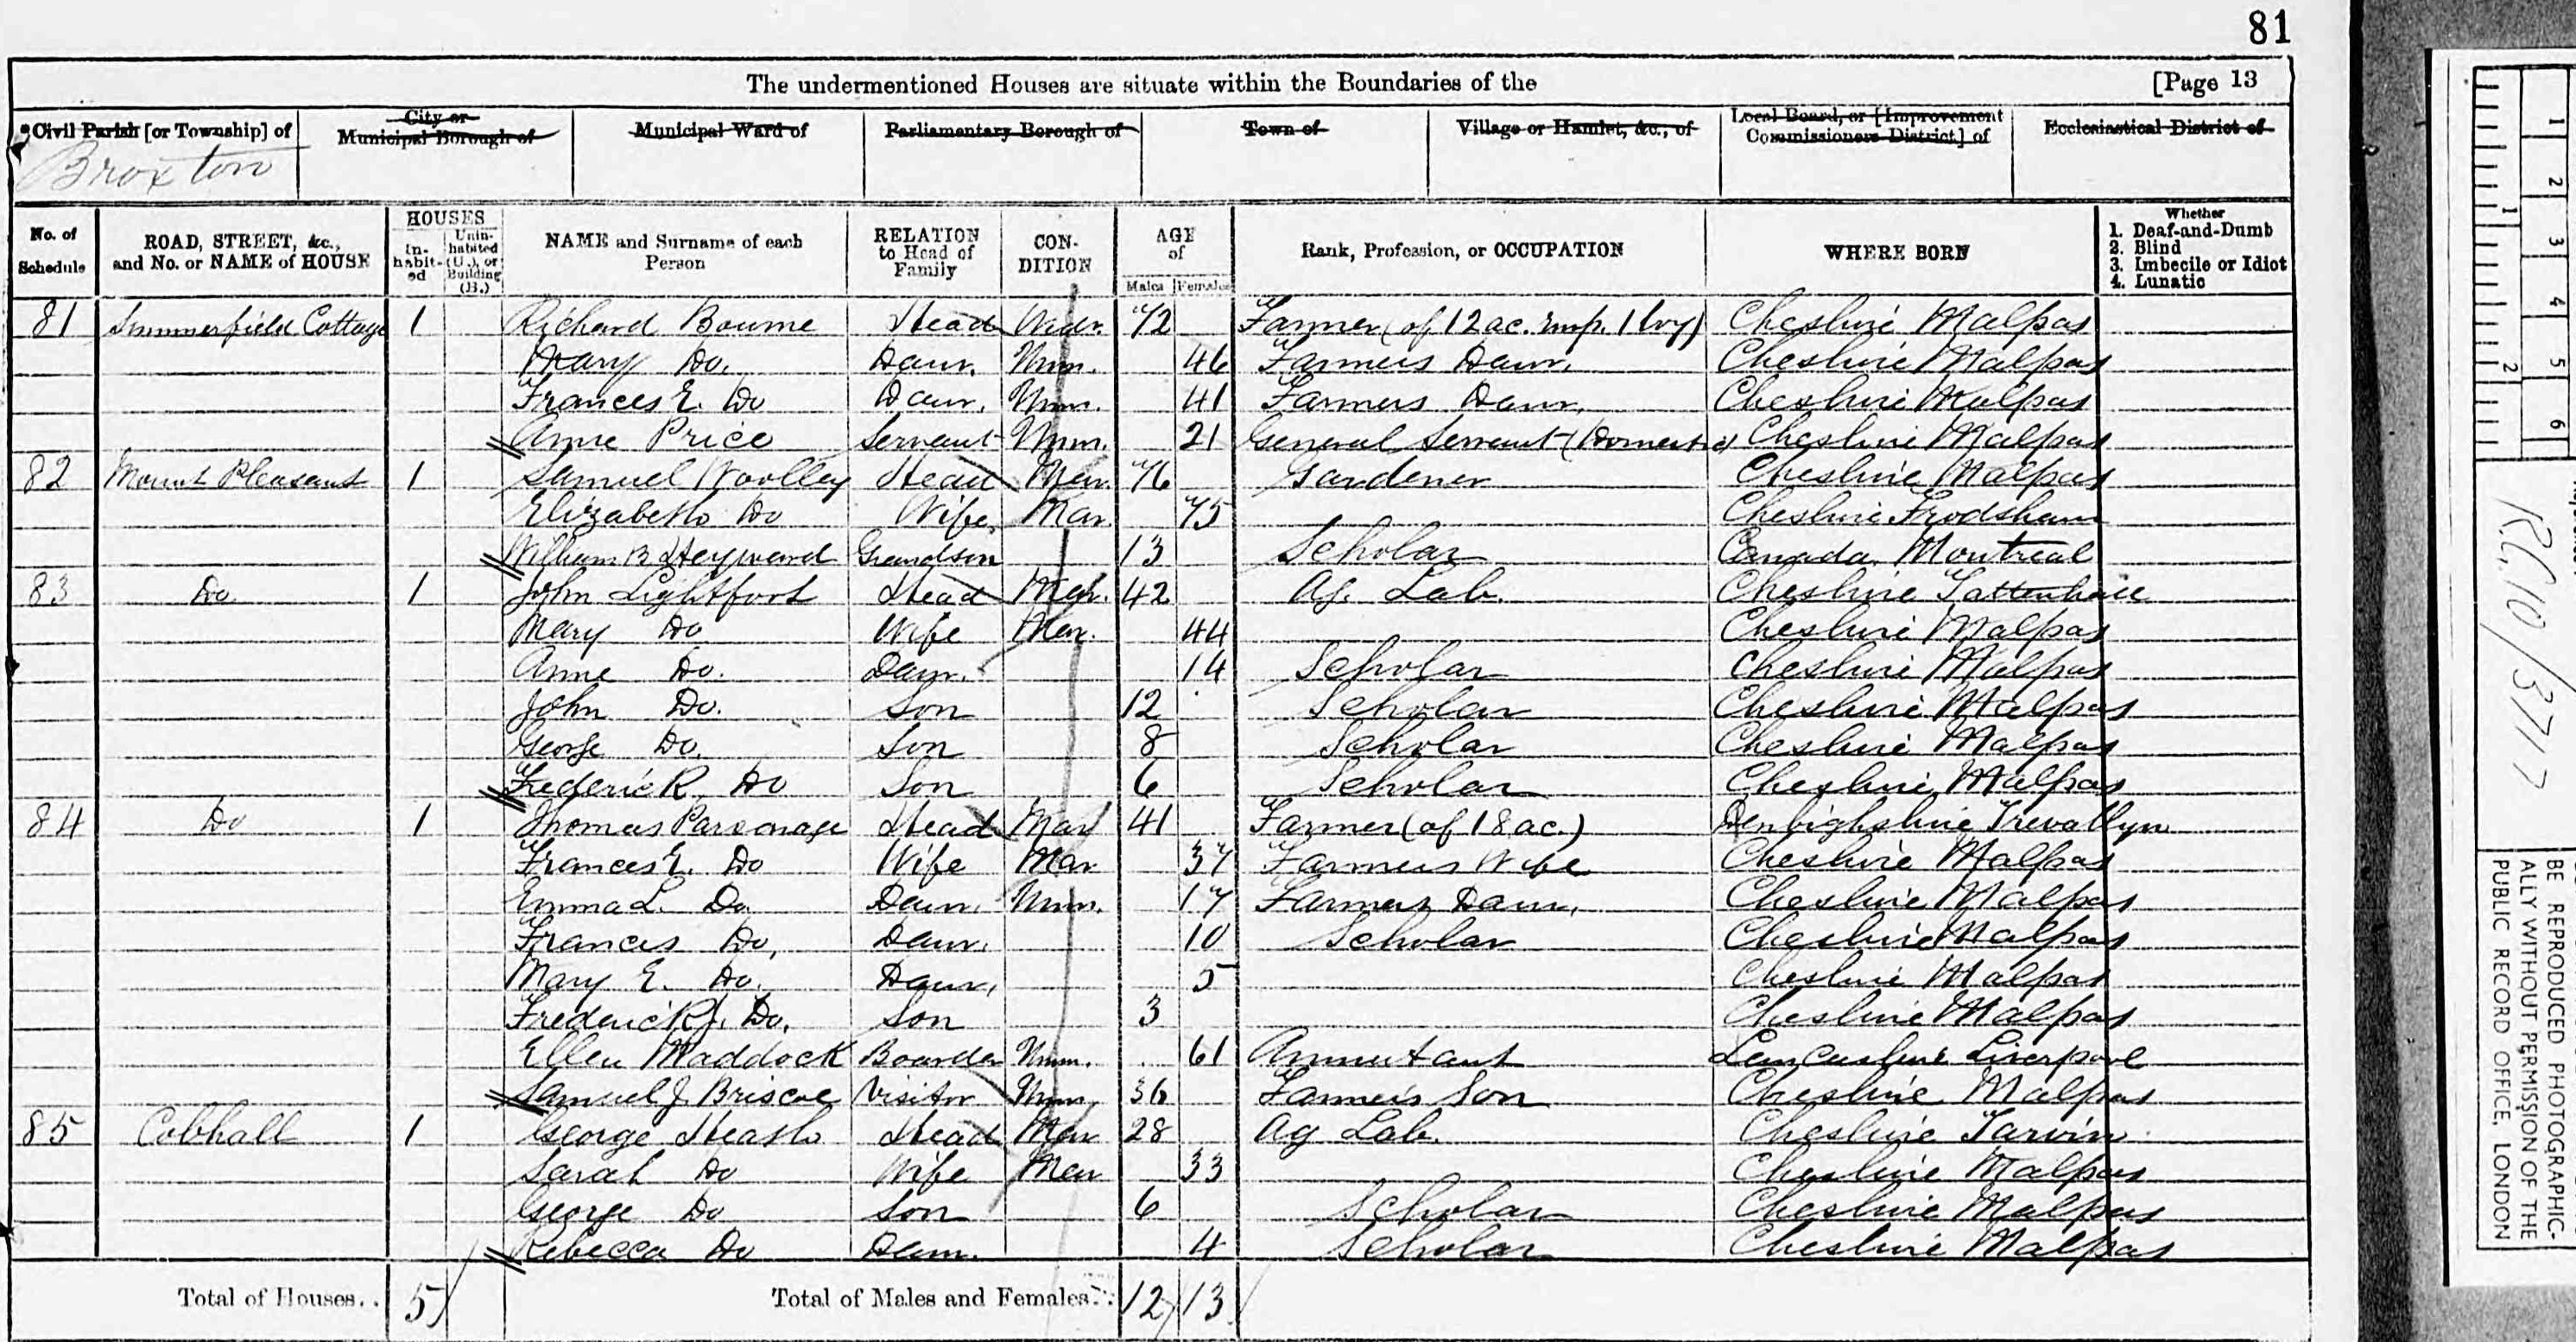 81
The undermentioned Houses are situate within the Boundaries of the [Page 13
Civil Parish [or Township] of City or Municipal Borough of Municipal Ward of Parliamentary Borough of Town of Village or Hamlet, &c., of Local Board, or [Improvement Commissioners District] of Ecclesiastical District of
Broxton
No. of Schedule ROAD, STREET, &c., and No. or NAME of HOUSE HOUSES In-habit-ed Unin-habited (U.), or Building (B.) NAME and Surname of each Person RELATION to Head of Family CON-DITION AGE of Males Females Rank, Profession, or OCCUPATION WHERE BORN Whether 1. Deaf-and-Dumb 2. Blind 3. Imbecile or Idiot 4. Lunatic
81 Summerfield Cottage 1 Richard Bourne Head Widr. 72 Farmer (of 12 ac. emp. 1 boy) Cheshire Malpas
Mary Do. Daur. Unm. 46 Farmers Daur. Cheshire Malpas
Frances E. Do Daur. Unm. 41 Farmers Daur. Cheshire Malpas
Anne Price Servant Unm. 21 General Servant (Domestic) Cheshire Malpas
82 Mount Pleasant 1 Samuel Woolley Head Mar. 76 Gardener Cheshire Malpas
Elizabeth Do Wife Mar. 75 Cheshire Frodsham
William B Heyward Grandson 13 Scholar Canada Montreal
83 Do. 1 John Lightfoot Head Mar. 42 Ag. Lab. Cheshire Tattenhall
Mary Do Wife Mar. 44 Cheshire Malpas
Anne Do. Daur. 14 Scholar Cheshire Malpas
John Do. Son 12 Scholar Cheshire Malpas
George Do. Son 8 Scholar Cheshire Malpas
Frederick Do Son 6 Scholar Cheshire Malpas
84 Do 1 Thomas Parsonage Head Mar 41 Farmer (of 18 ac.) Denbighshire Trevallyn
Frances E. Do Wife Mar 37 Farmers Wife Cheshire Malpas
Emma L. Do. Daur. Unm. 17 Farmers Daur. Cheshire Malpas
Frances Do. Daur. 10 Scholar Cheshire Malpas
Mary E. Do. Daur. 5 Cheshire Malpas
Frederick J. Do. Son 3 Cheshire Malpas
Ellen Maddock Boarder Unm. 61 Annuitant Lancashire Liverpool
Samuel J. Briscoe Visitor Unm. 36 Farmer's Son Cheshire Malpas
85 Cobhall 1 George Heath Head Mar 28 Ag Lab. Cheshire Tarvin
Sarah Do Wife Mar 33 Cheshire Malpas
George Do Son 6 Scholar Cheshire Malpas
Rebecca Do Daur. 4 Scholar Cheshire Malpas
Total of Houses.. 5 Total of Males and Females.. 12 13
1 2 3 4 5 6
1 2
RG10/3717
BE REPRODUCED PHOTOGRAPHIC-
ALLY WITHOUT PERMISSION OF THE
PUBLIC RECORD OFFICE, LONDON